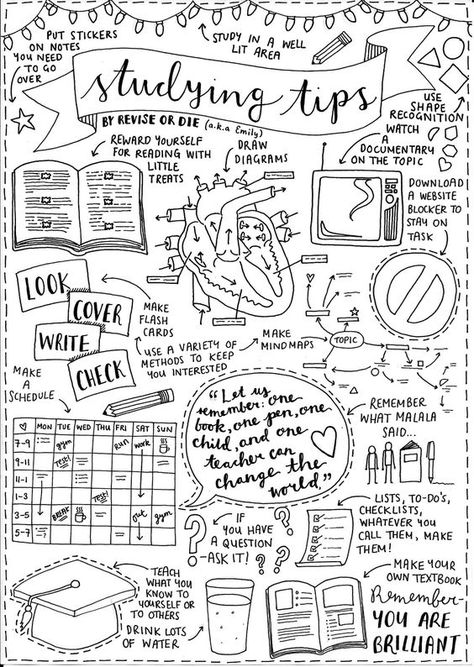 PUT STICKERS
ON NOTES
YOU NEED
TO GO
OVER
STUDY IN A WELL
LIT AREA
studying tips
BY REVISE OR DIE (a.k.a Emily)
USE
SHAPE
RECOGNITION
REWARD YOURSELF
FOR READING WITH
LITTLE
TREATS
DRAW
DIAGRAMS
WATCH
A
DOCUMENTARY
ON THE TOPIC
DOWNLOAD
A WEBSITE
BLOCKER TO
STAY ON
TASK
LOOK
COVER
WRITE
CHECK
MAKE
FLASH
CARDS
USE A VARIETY OF
METHODS TO KEEP
YOU INTERESTED
MAKE
MINDMAPS
TOPIC
MAKE
A
SCHEDULE
MON TUE WED THU FRI SAT SUN
7-9 gym RUN work
9-11 TEST!
11-1
1-3 TEST!
3-5 BREAK out gym
5-7
"Let us
remember: one
book, one pen, one
child, and one
teacher can
change the
world."
REMEMBER
WHAT MALALA
SAID...
IF
YOU HAVE
A QUESTION
-ASK IT!
? ? ? ? ?
LISTS, TO-DO'S,
CHECKLISTS,
WHATEVER YOU
CALL THEM, MAKE
THEM!
TEACH
WHAT YOU
KNOW TO
YOURSELF OR
TO OTHERS
DRINK LOTS
OF WATER
MAKE YOUR
OWN TEXTBOOK
Remember-
YOU ARE
BRILLIANT